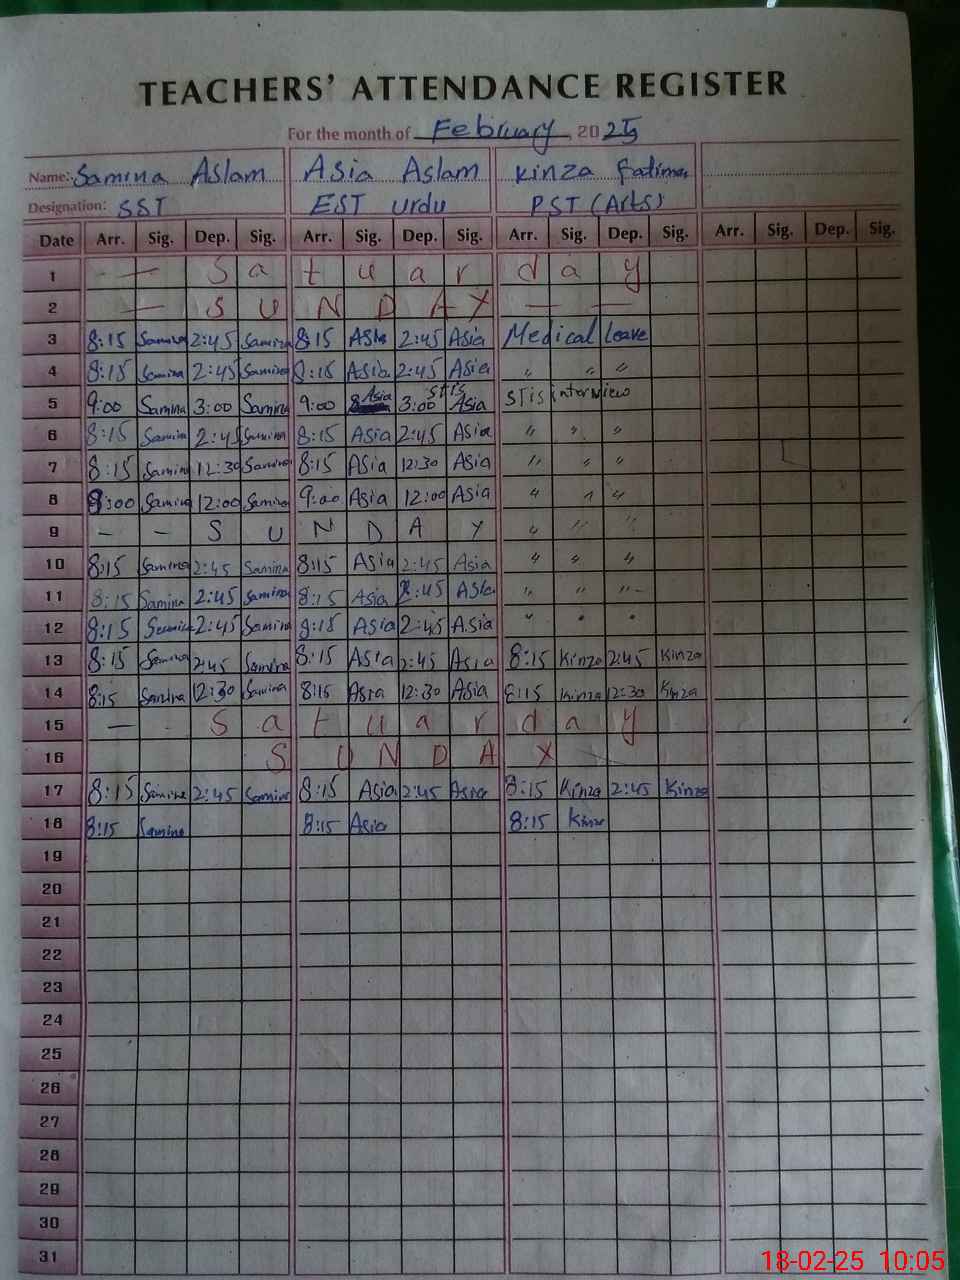 TEACHERS' ATTENDANCE REGISTER
For the month of February, 2025
Name: Samina Aslam Asia Aslam Kinza Fatima
Designation: SST EST Urdu PST (Arts)
Date Arr. Sig. Dep. Sig. Arr. Sig. Dep. Sig. Arr. Sig. Dep. Sig. Arr. Sig. Dep. Sig.
1 - - S a t u r d a y
2 - S U N D A Y - -
3 8:15 Samina 2:45 Samina 8:15 Asia 2:45 Asia Medical Leave
4 8:15 Samina 2:45 Samina 8:15 Asia 2:45 Asia " " "
5 9:00 Samina 3:00 Samina 9:00 Asia 3:00 STIS Asia STIS interview
6 8:15 Samina 2:45 Samina 8:15 Asia 2:45 Asia " " "
7 8:15 Samina 12:30 Samina 8:15 Asia 12:30 Asia " " "
8 9:00 Samina 12:00 Samina 9:00 Asia 12:00 Asia " " "
9 - - S U N D A Y " " "
10 8:15 Samina 2:45 Samina 8:15 Asia 2:45 Asia " " "
11 8:15 Samina 2:45 Samina 8:15 Asia 2:45 Asia " " "
12 8:15 Samina 2:45 Samina 8:15 Asia 2:45 Asia " " "
13 8:15 Samina 2:45 Samina 8:15 Asia 2:45 Asia 8:15 Kinza 2:45 Kinza
14 8:15 Samina 12:30 Samina 8:15 Asia 12:30 Asia 8:15 Kinza 12:30 Kinza
15 - - S a t u r d a y
16 S U N D A Y
17 8:15 Samina 2:45 Samina 8:15 Asia 2:45 Asia 8:15 Kinza 2:45 Kinza
18 8:15 Samina 8:15 Asia 8:15 Kinza
19
20
21
22
23
24
25
26
27
28
29
30
31
18-02-25 10:05